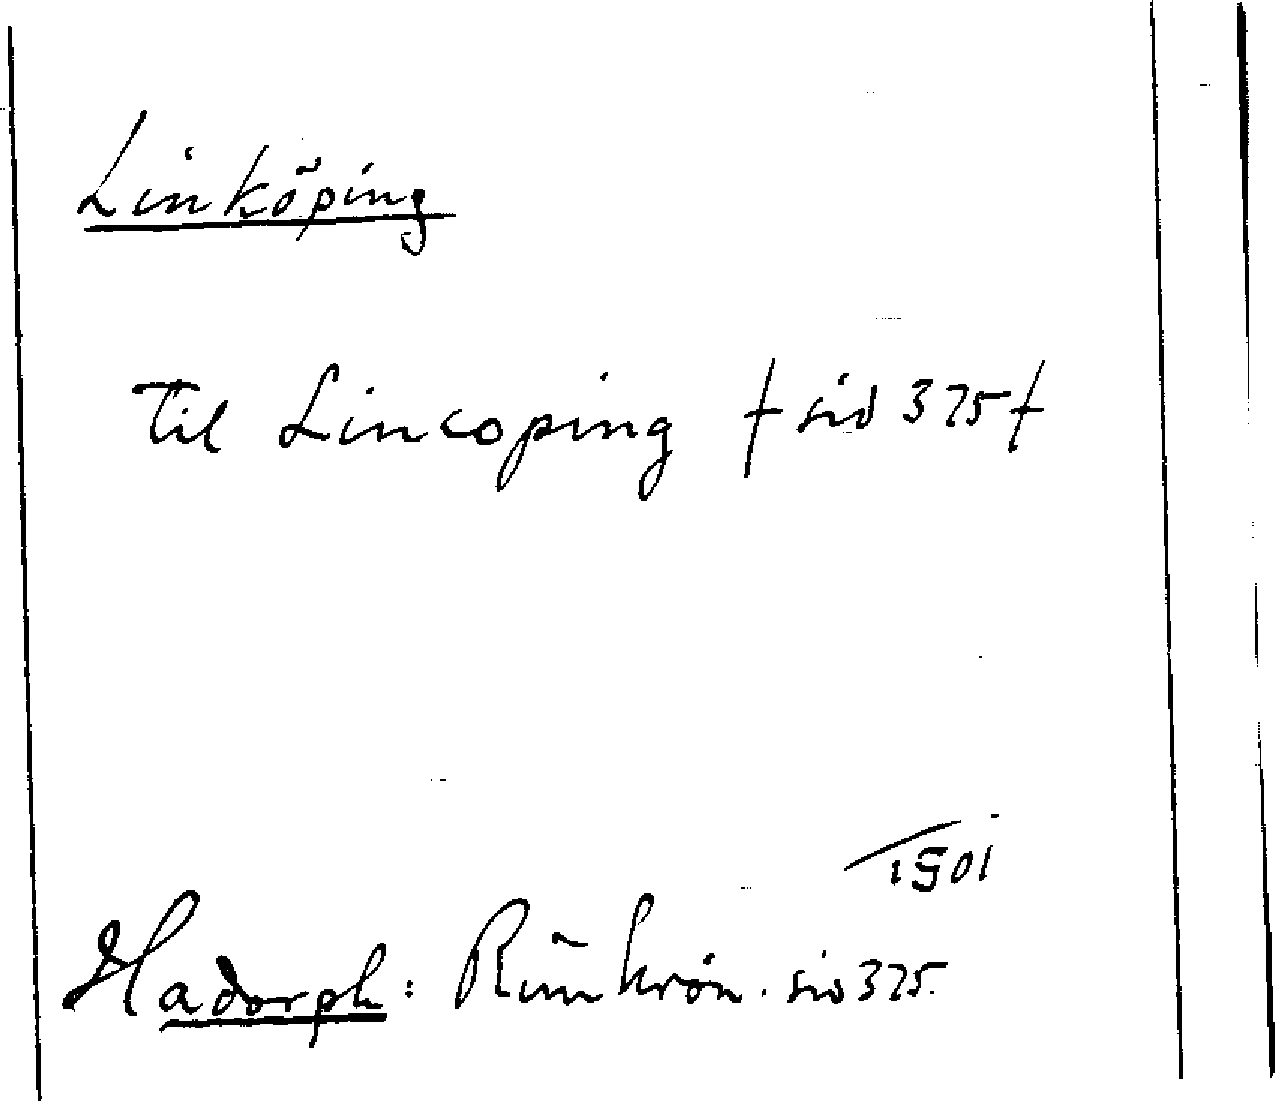 Linköping
Til Lincoping f sid 375 f
1501
Hadorph: Rimkrön. sid 375.